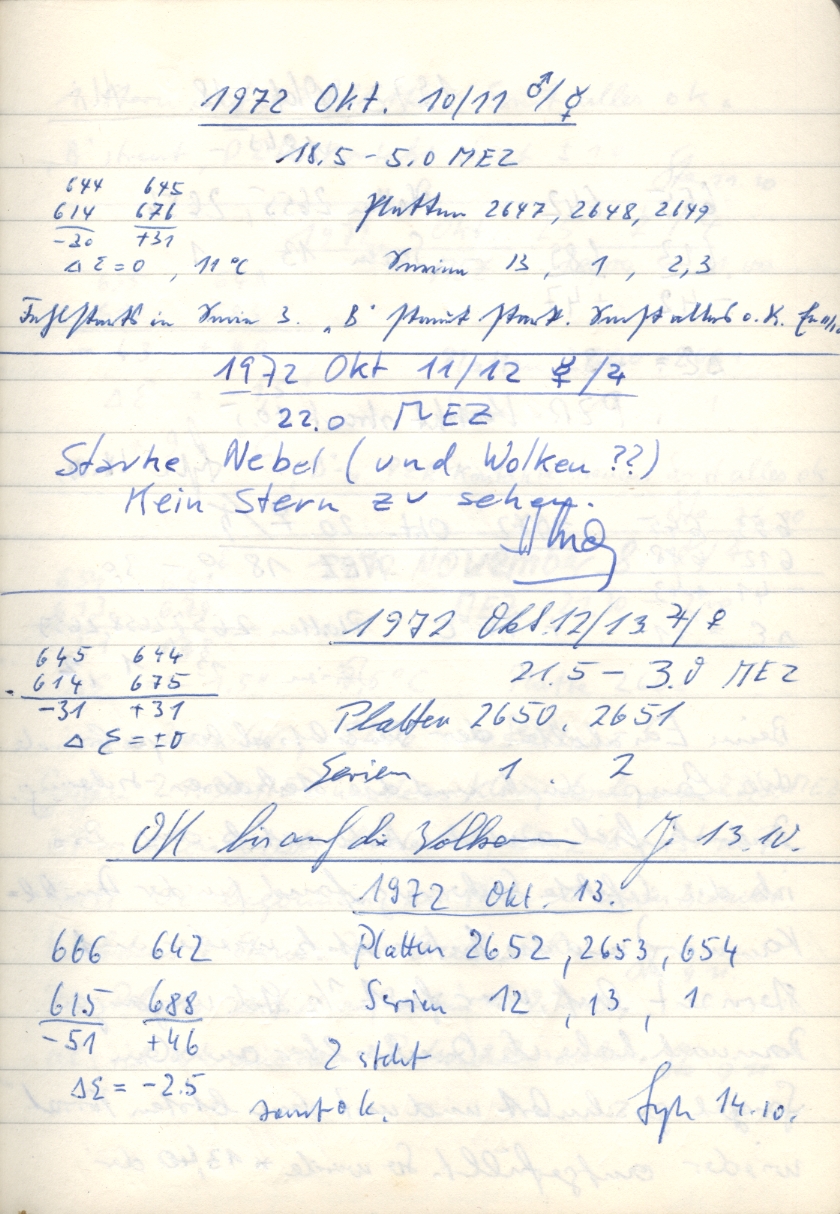 1972 Okt. 10/11 ♂/☿
18.5 – 5.0 MEZ
644 645
614 676 Platten 2647, 2648, 2649
-30 +31
Δε = 0 , 11°C Serien 13 , 1 , 2,3
Fehlstarts in Serie 3. "B" stark. Sonst alles o.K.
1972 Okt 11/12 ☿/♃
22.0 MEZ
Starke Nebel (und Wolken ??)
Kein Stern zu sehen.
1972 Okt. 12/13 ♃/♀
645 644 21.5 – 3.0 MEZ
614 675
-31 +31 Platten 2650, 2651
Δε = ±0
Serien 1 . 2
OK bis auf die Wolken 13.10.
1972 Okt. 13.
666 642 Platten 2652, 2653, 654
615 688 Serien 12 , 13 , 1
-51 +46
2 steht
Δε = -2.5
sonst ok. 14.10.